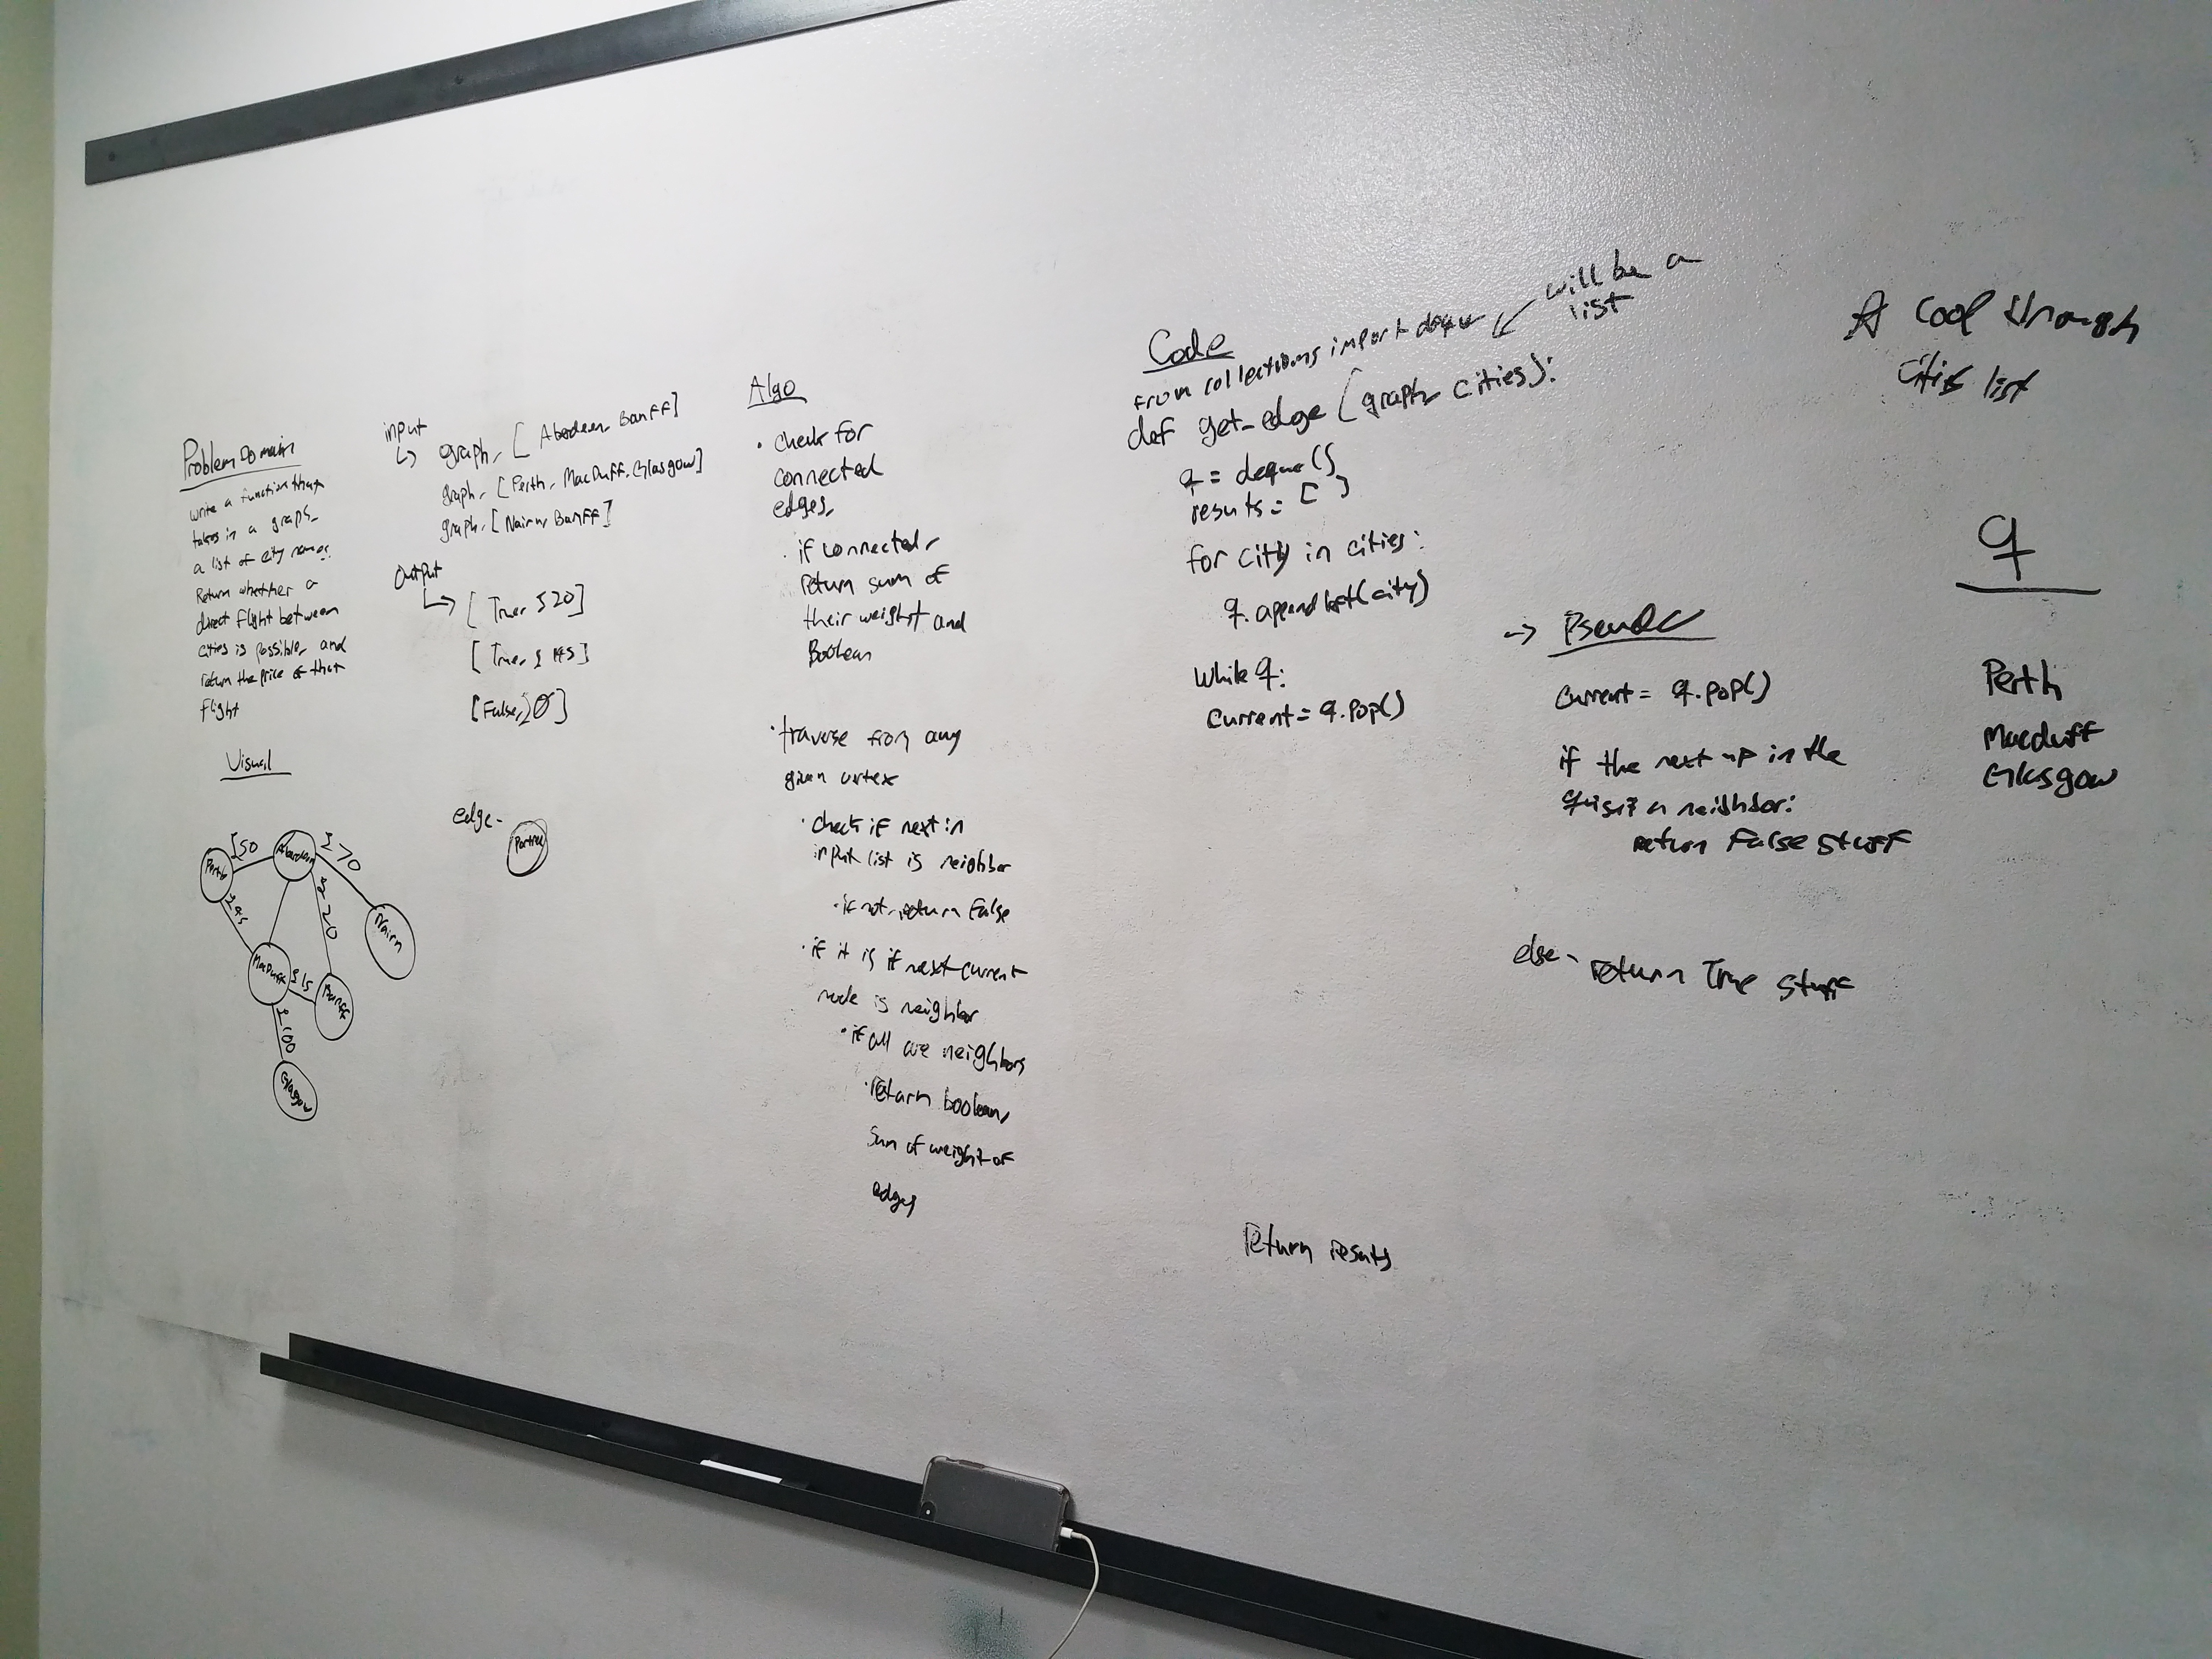 Problem Domain
write a function that
takes in a graph,
a list of city names.
Return whether a
direct flight between
cities is possible, and
return the price of that
flight
input
graph, [Aberdeen, Banff]
graph, [Perth, MacDuff, Glasgow]
graph, [Nairn, Banff]
Output
[True, $20]
[True, $145]
[False, $0]
Visual
Perth
$50
Aberdeen
$70
$45
$20
Nairn
MacDuff
$15
Banff
$100
Glasgow
edge-
Algo
• check for
connected
edges,
• if connected,
return sum of
their weight and
Boolean
• traverse from any
given vertex
• check if next in
input list is neighbor
• if not, return False
• if it is if next current
node is neighbor
• if all are neighbors
• return boolean,
Sum of weight of
edges
Code
will be a
list
from collections import deque
def get_edge (graph, cities):
q = deque()
results = []
for city in cities:
q.appendleft(city)
While q:
Current = q.pop()
return results
-> Pseudo
Current = q.pop()
if the next up in the
q isn't a neighbor:
return False stuff
else- return True stuff
cool through
cities list
q
Perth
Macduff
Glasgow